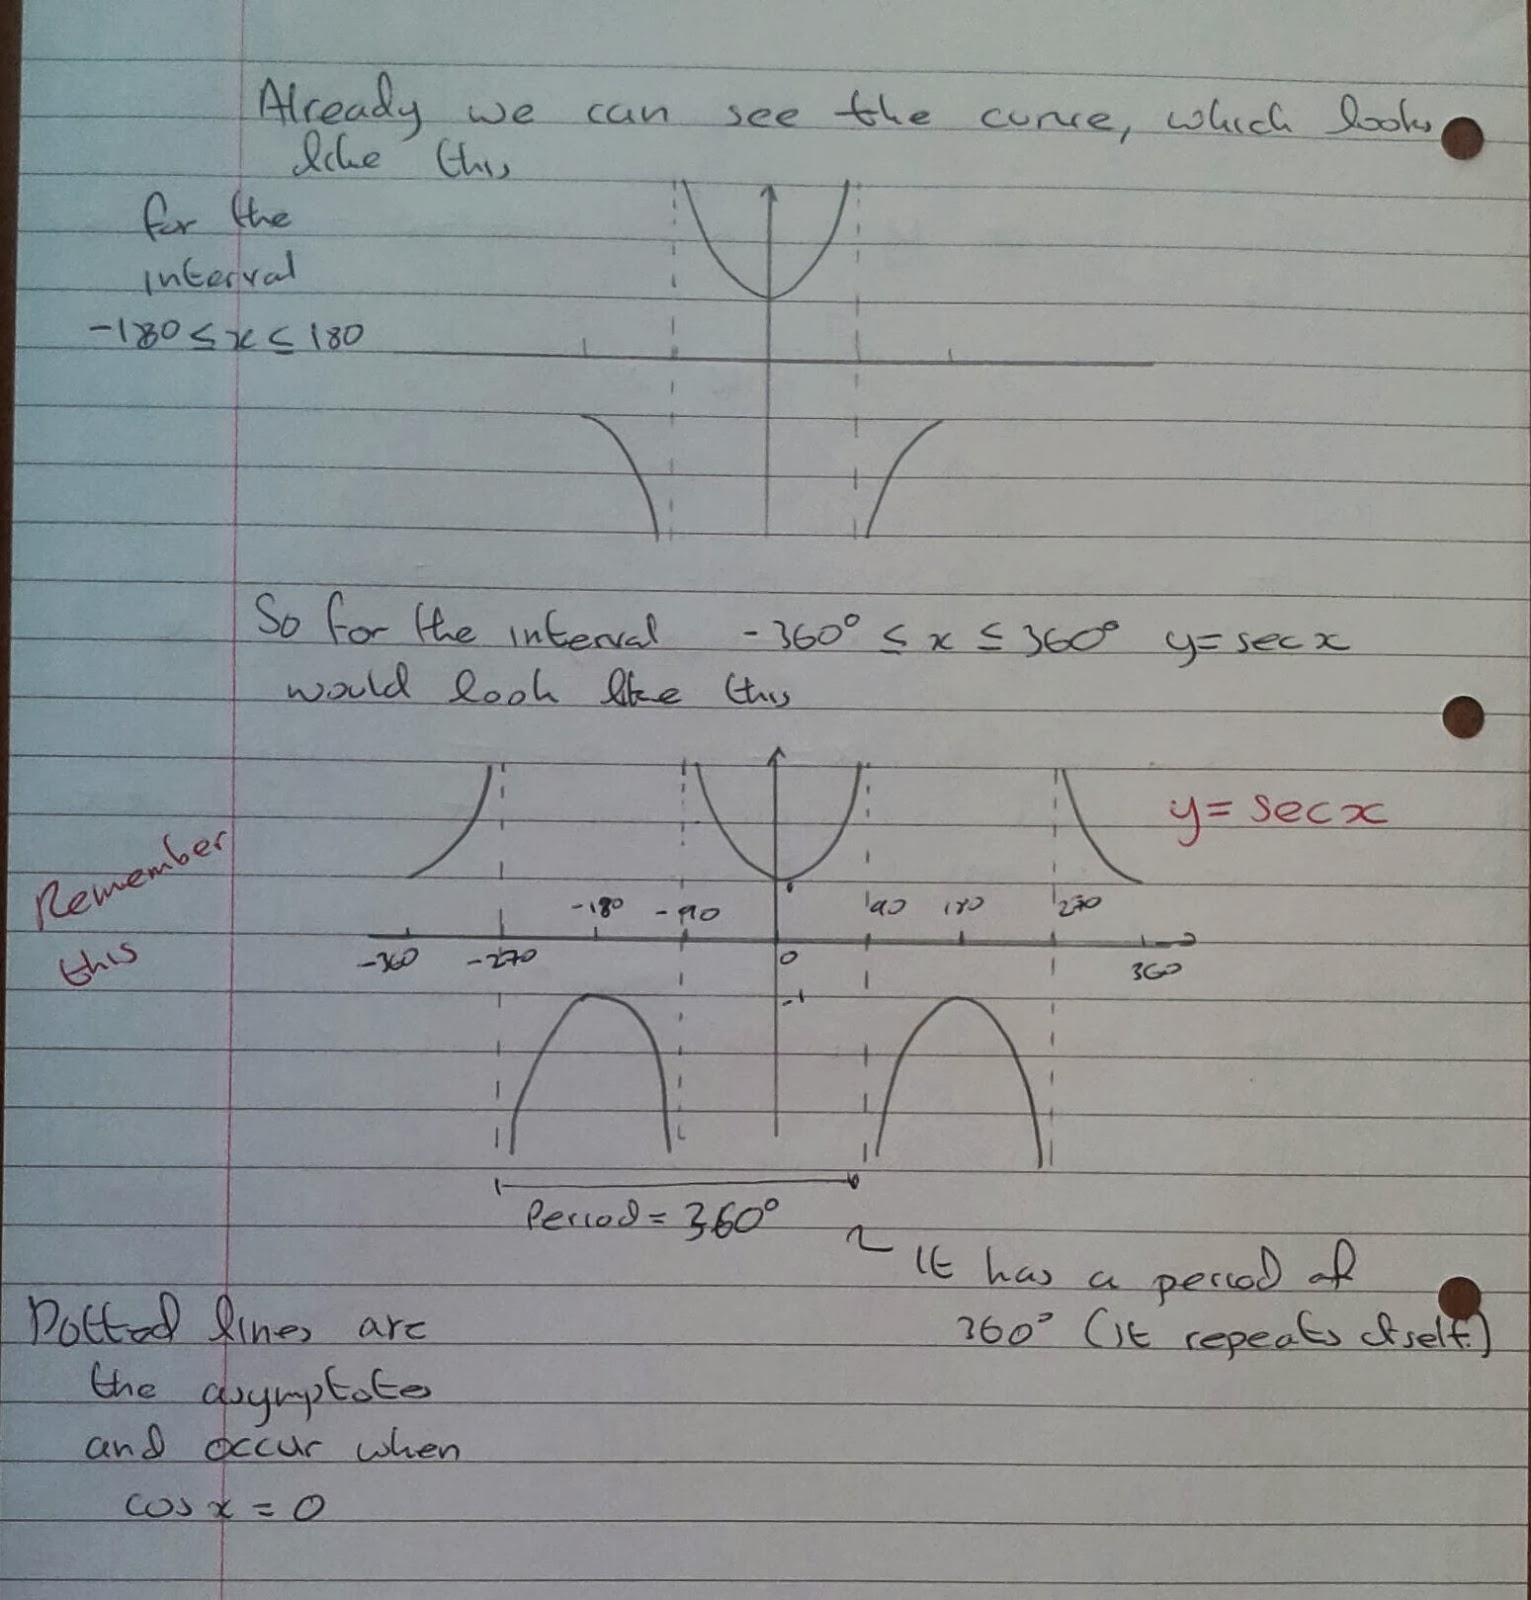 Already we can see the curve, which looks
like this
for the
interval
-180 ≤ x ≤ 180
So for the interval -360° ≤ x ≤ 360° y = sec x
would look like this
y = sec x
Remember
this
-180 -90 90 180 270
-360 -270 0 360
-1
Period = 360°
~ It has a period of
360° (it repeats itself.)
Dotted lines are
the asymptotes
and occur when
cos x = 0